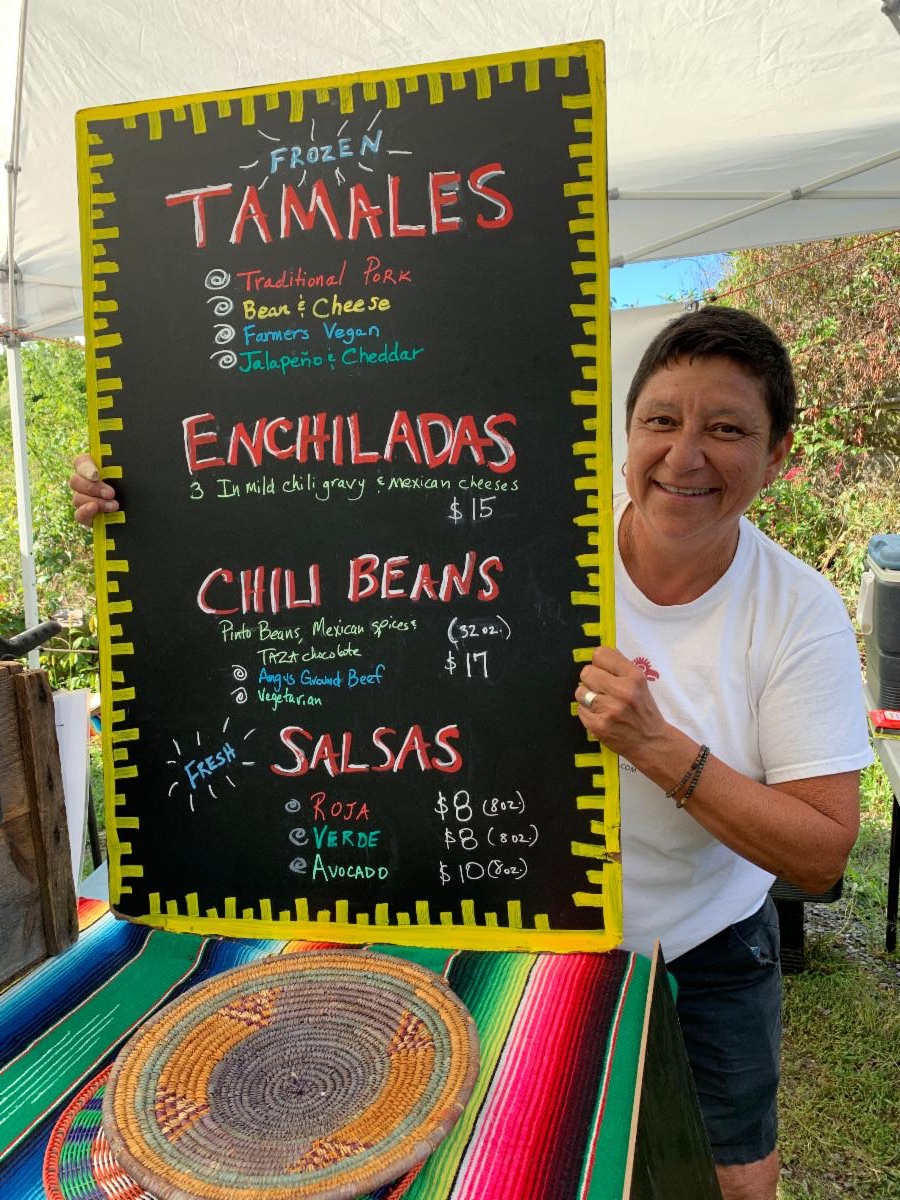 FROZEN
TAMALES
Traditional Pork
Bean & Cheese
Farmers Vegan
Jalapeño & Cheddar
ENCHILADAS
3 In mild chili gravy & mexican cheeses
$15
CHILI BEANS
Pinto Beans, Mexican spices & (32 oz.)
TAZA chocolate $17
Angus Ground Beef
Vegetarian
FRESH SALSAS
ROJA $8 (8oz.)
VERDE $8 (8oz.)
AVOCADO $10 (8oz.)
.COM